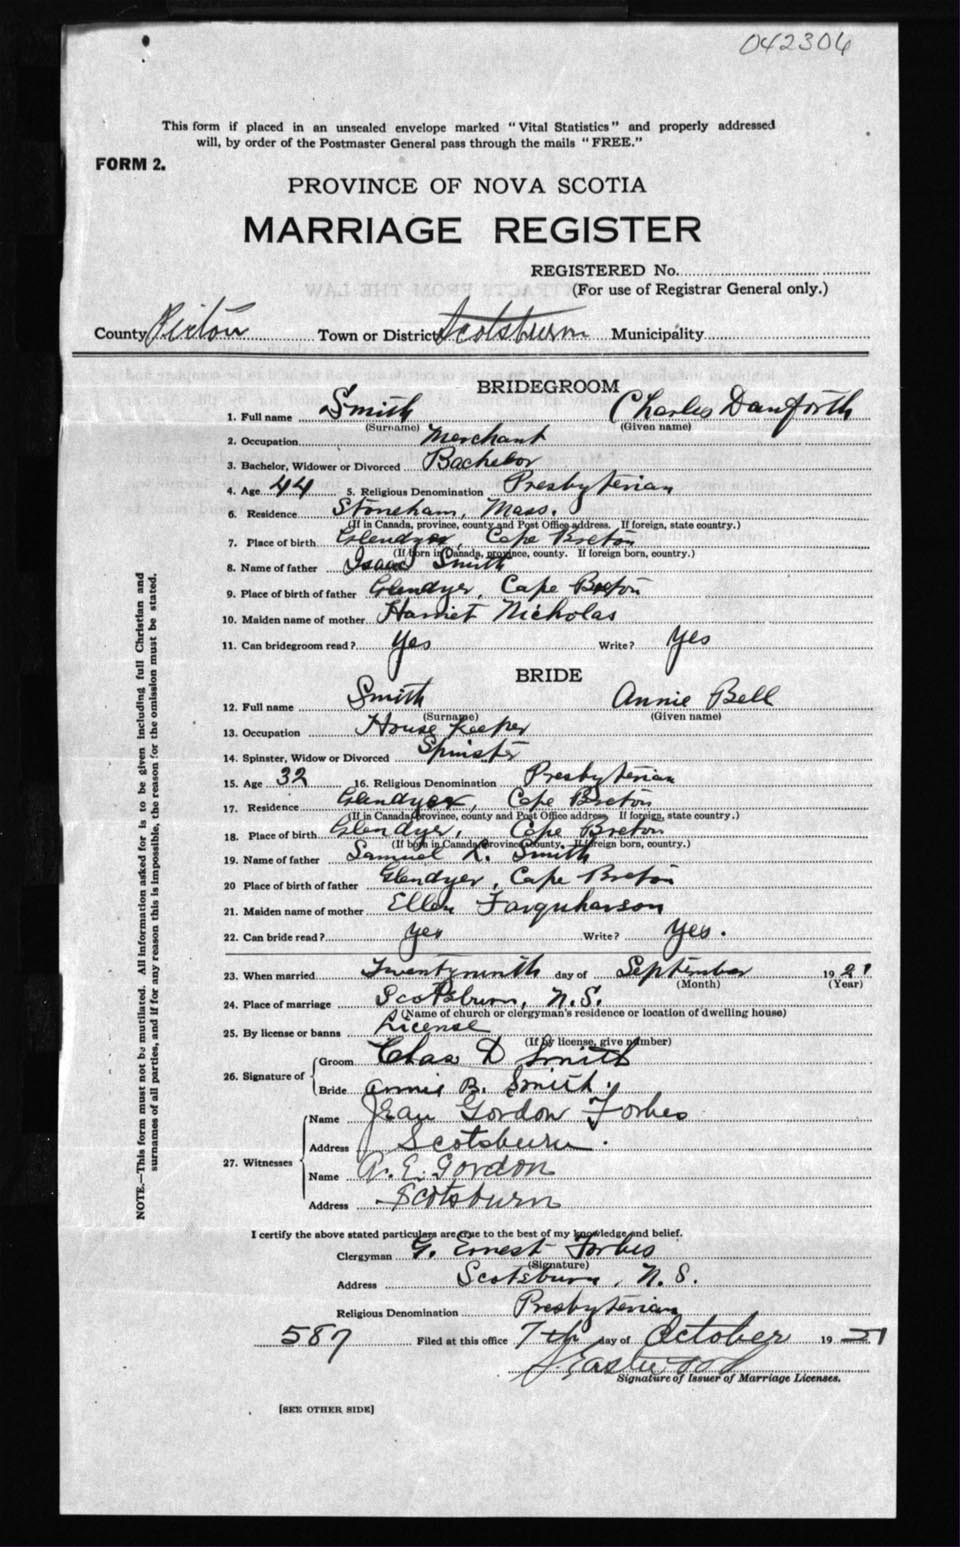 042306
This form if placed in an unsealed envelope marked "Vital Statistics" and properly addressed
will, by order of the Postmaster General pass through the mails "FREE."
FORM 2.
PROVINCE OF NOVA SCOTIA
MARRIAGE REGISTER
REGISTERED No.
(For use of Registrar General only.)
County Pictou Town or District Scotsburn Municipality
BRIDEGROOM
1. Full name Smith Charles Danforth
(Surname) (Given name)
2. Occupation Merchant
3. Bachelor, Widower or Divorced Bachelor
4. Age 44 5. Religious Denomination Presbyterian
6. Residence Stoneham, Mass.
(If in Canada, province, county and Post Office address. If foreign, state country.)
7. Place of birth Glendyer, Cape Breton
(If born in Canada, province, county. If foreign born, country.)
8. Name of father Isaac Smith
9. Place of birth of father Glendyer, Cape Breton
10. Maiden name of mother Harriet Nicholas
11. Can bridegroom read? Yes Write? Yes
BRIDE
12. Full name Smith Annie Bell
(Surname) (Given name)
13. Occupation House Keeper
14. Spinster, Widow or Divorced Spinster
15. Age 32 16. Religious Denomination Presbyterian
17. Residence Glendyer, Cape Breton
(If in Canada, province, county and Post Office address. If foreign, state country.)
18. Place of birth Glendyer, Cape Breton
(If born in Canada, province, county. If foreign born, country.)
19. Name of father Samuel L. Smith
20 Place of birth of father Glendyer, Cape Breton
21. Maiden name of mother Ellen Farquharson
22. Can bride read? Yes Write? Yes.
23. When married Twentyninth day of September 1921
(Month) (Year)
24. Place of marriage Scotsburn, N.S.
(Name of church or clergyman's residence or location of dwelling house)
25. By license or banns License
(If by license, give number)
26. Signature of Groom Chas D Smith
Bride Annie B. Smith.
27. Witnesses Name Jean Gordon Forbes
Address Scotsburn.
Name A. E. Gordon
Address Scotsburn
I certify the above stated particulars are true to the best of my knowledge and belief.
Clergyman G. Ernest Forbes
(Signature)
Address Scotsburn, N. S.
Religious Denomination Presbyterian
587 Filed at this office 7th day of October 1921
Eastwood
Signature of Issuer of Marriage Licenses.
[SEE OTHER SIDE]
NOTE.—This form must not be mutilated. All information asked for is to be given including full Christian and
surnames of all parties, and if for any reason this is impossible, the reason for the omission must be stated.